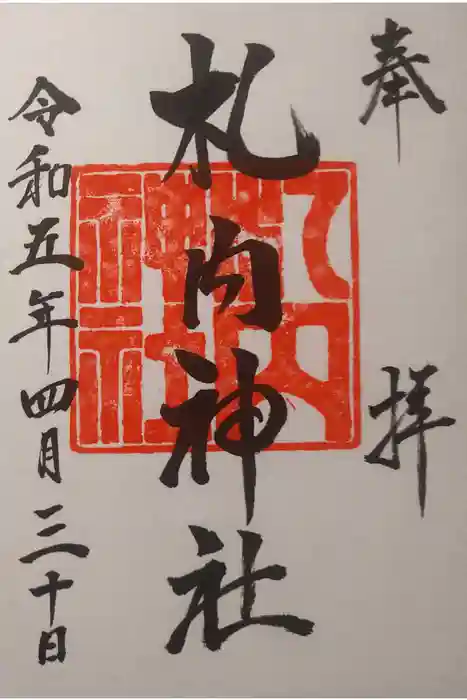 奉拝
札内神社
令和五年四月三十日
札内神社